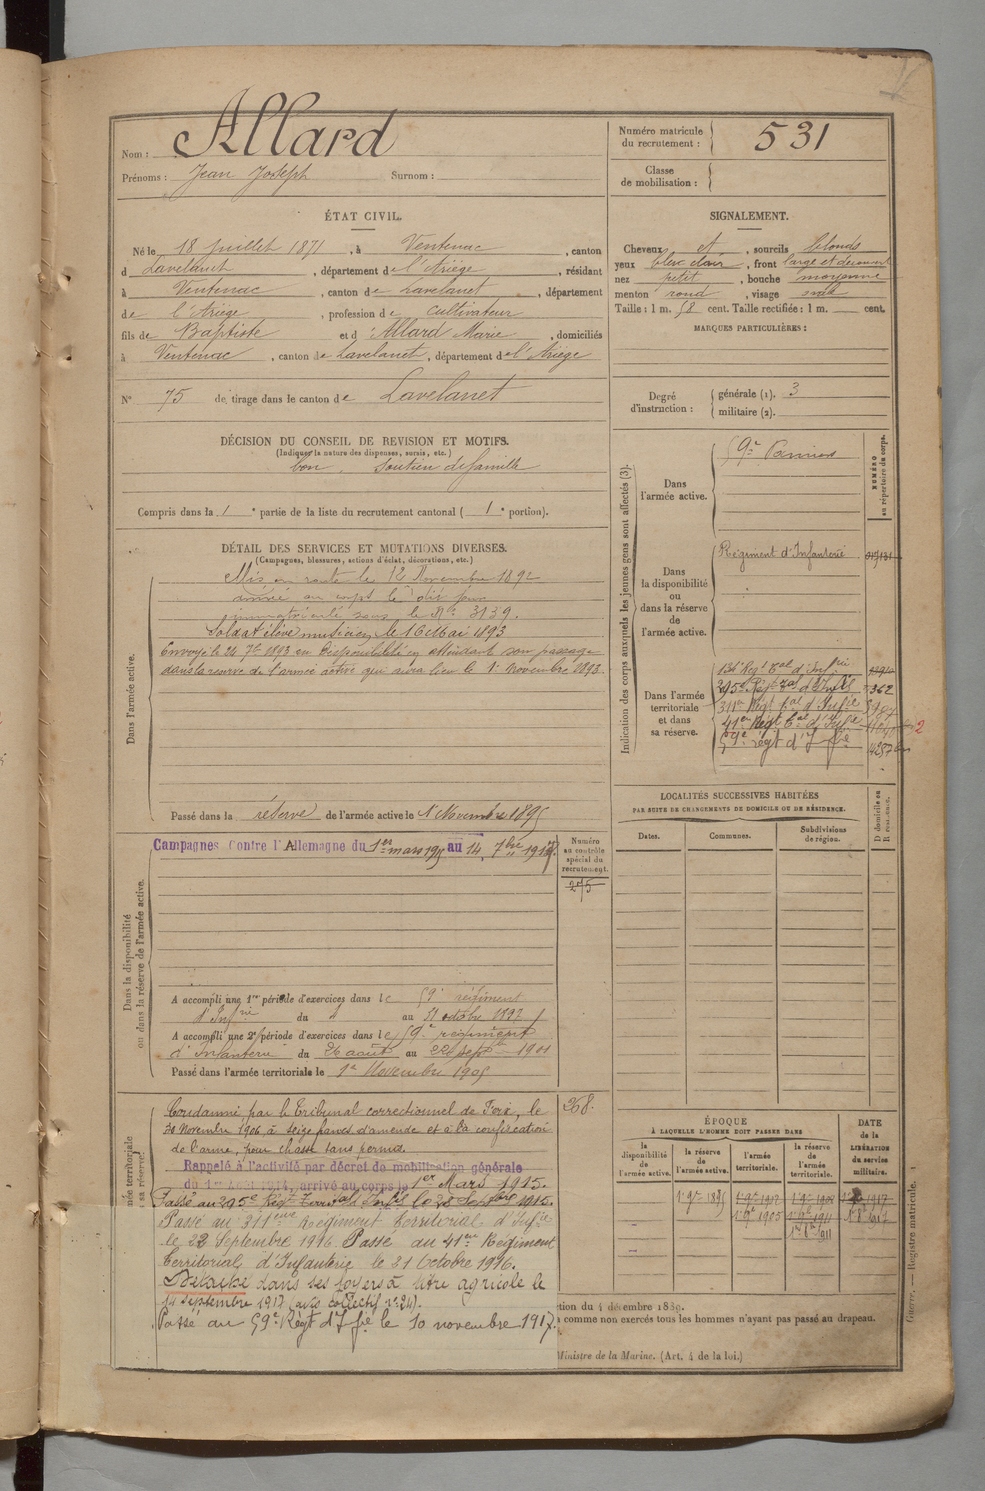 Nom : Allard
Prénoms : Jean Joseph Surnom :
Numéro matricule du recrutement : 531
Classe de mobilisation :
ÉTAT CIVIL.
Né le 18 Juillet 1871, à Ventenac, canton
d Lavelanet, département de l'Ariège, résidant
à Ventenac, canton de Lavelanet, département
de l'Ariège, profession de cultivateur
fils de Baptiste et d Allard Marie, domiciliés
à Ventenac, canton de Lavelanet, département de l'Ariège
N° 75 de tirage dans le canton de Lavelanet
SIGNALEMENT.
Cheveux et, sourcils blonds
yeux bleu clair, front large et découvert
nez petit, bouche moyenne
menton rond, visage ovale
Taille : 1 m. 58 cent. Taille rectifiée : 1 m. cent.
MARQUES PARTICULIÈRES :
Degré d'instruction : générale (1). 3
militaire (2).
DÉCISION DU CONSEIL DE REVISION ET MOTIFS.
(Indiquer la nature des dispenses, sursis, etc.)
bon. Soutien de famille
Compris dans la 1e partie de la liste du recrutement cantonal ( 1e portion).
DÉTAIL DES SERVICES ET MUTATIONS DIVERSES.
(Campagnes, blessures, actions d'éclat, décorations, etc.)
Dans l'armée active.
Mis en route le 12 Novembre 1892
arrivé au corps le dit jour
immatriculé sous le N° 3139.
Soldat élève musicien le 16 Mai 1893
Envoyé le 24 7bre 1893 en disponibilité en attendant son passage
dans la réserve de l'armée active qui aura lieu le 1er novembre 1893.
Passé dans la réserve de l'armée active le 1 Novembre 1895
Dans la disponibilité
ou dans la réserve de l'armée active.
Campagnes Contre l'Allemagne du 1er mars 1915 au 14 7bre 1917.
Numéro au contrôle spécial du recrutement.
275
A accompli une 1re période d'exercices dans le 59e régiment
d'Infrie du 4 au 31 octobre 1897
A accompli une 2e période d'exercices dans le 59e régiment
d'Infanterie du 26 août au 22 sept 1901
Passé dans l'armée territoriale le 1er Novembre 1905
268.
Condamné par le Tribunal correctionnel de Foix, le
30 Novembre 1906, à seize francs d'amende et à la confiscation
de l'arme, pour chasse sans permis.
Rappelé à l'activité par décret de mobilisation générale
du 1er Août 1914, arrivé au corps le 1er Mars 1915.
Passé au 295e Régt Territal Infie le 20 Septbre 1915.
Passé au 311eme Regiment Territorial d'Infie
le 22 Septembre 1916 Passé au 41eme Regiment
Territorial d'Infanterie le 21 Octobre 1916.
Détaché dans ses foyers à titre agricole le
14 septembre 1917 (avis collectif n° 24).
Passé au 59e Régt d'Ifie le 10 novembre 1917.
Indication des corps auxquels les jeunes gens sont affectés (3).
NUMÉRO au répertoire du corps.
Dans l'armée active.
59e Pamiers
Dans la disponibilité ou dans la réserve de l'armée active.
Régiment d'Infanterie
Dans l'armée territoriale et dans sa réserve.
295e Régt Tal d'Infie 7362
311e Régt Tal d'Infie
41e Régt Tal d'Infie
59e régt d'Ifie
LOCALITÉS SUCCESSIVES HABITÉES
PAR SUITE DE CHANGEMENTS DE DOMICILE OU DE RÉSIDENCE.
Dates. Communes. Subdivisions de région. D domicile ou R résidence.
ÉPOQUE
À LAQUELLE L'HOMME DOIT PASSER DANS
la disponibilité de l'armée active. la réserve de l'armée active. l'armée territoriale. la réserve de l'armée territoriale. DATE de la LIBÉRATION du service militaire.
1 9bre 1895
1 9bre 1905
1 9bre 1911
ction du 4 décembre 1889.
à comme non exercés tous les hommes n'ayant pas passé au drapeau.
Ministre de la Marine. (Art. 4 de la loi.)
Guerre. — Registre matricule. 1